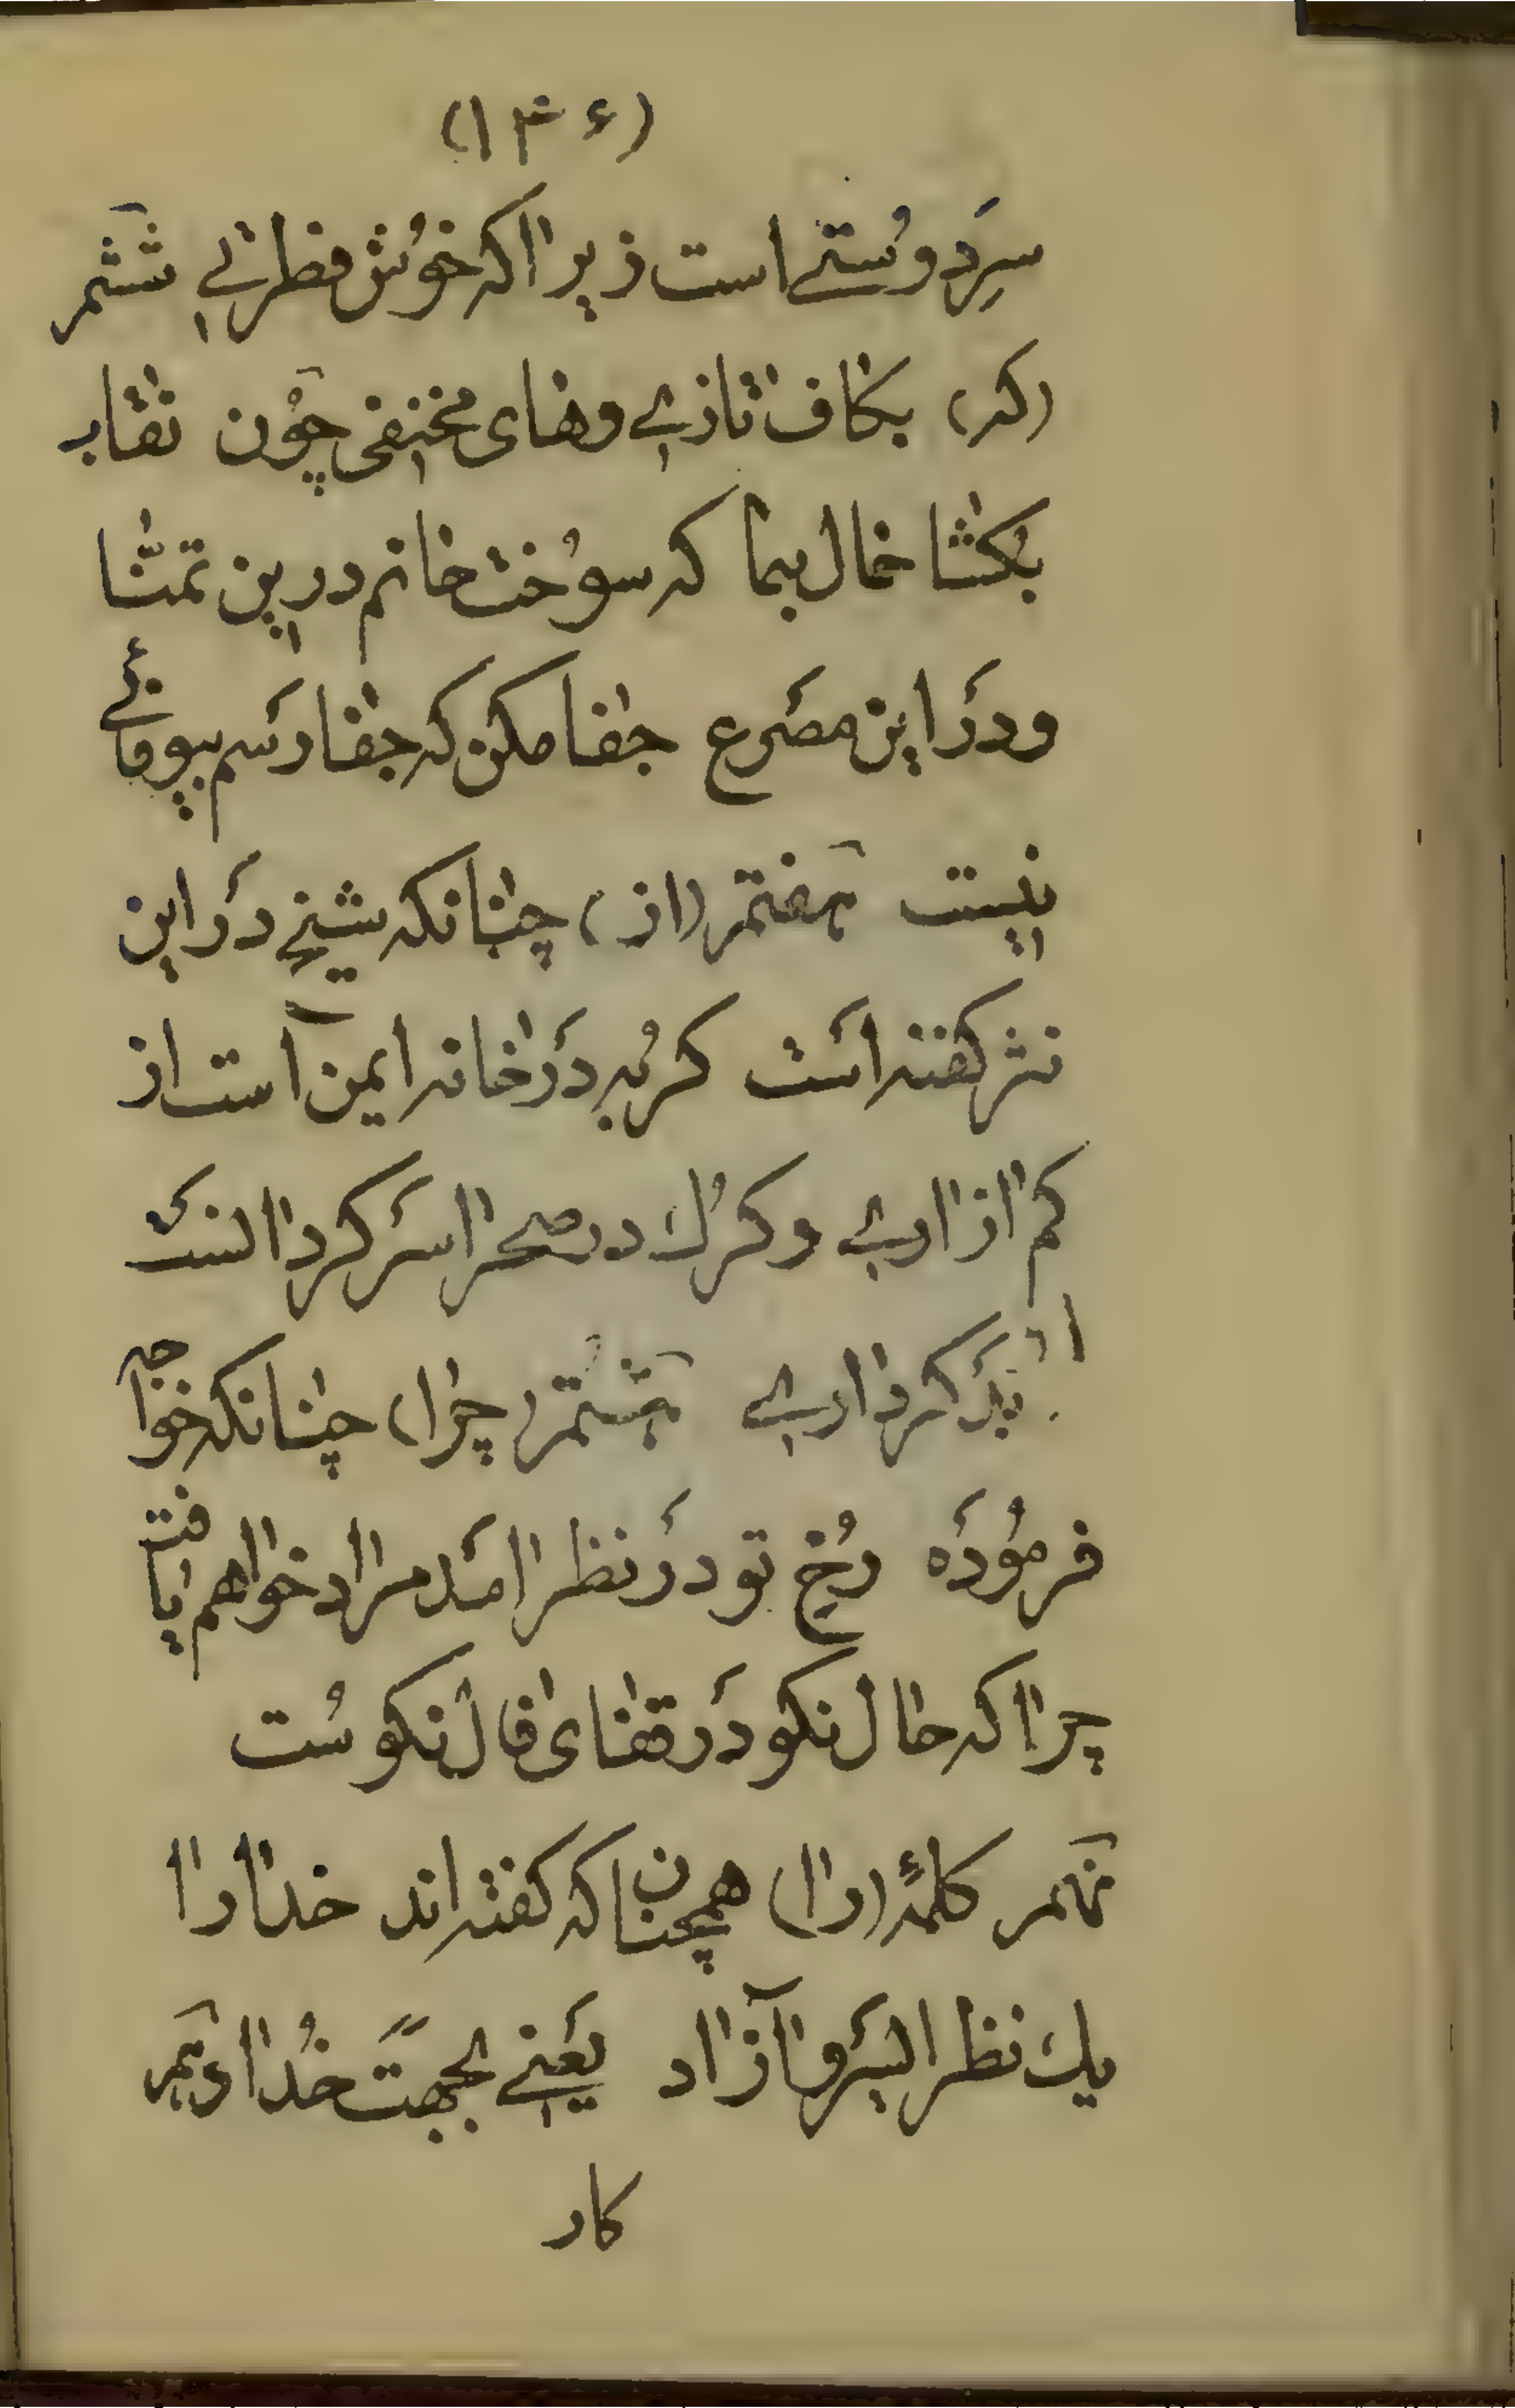 (۱۳۶)
سردوستے است زیرا که خوش فطرتے ششم
(که) بکاف تازے وهای مختفی چون نقاب
بکشا جمال بنما که سوخت جانم درین تمنّا
ودر این مصرع جفا مکن که جفا رسم بیوفائے
نیست هفتم (از) چنانکه شیخ در این
نثر گفته است گربه در خانه ایمن است از
کم ازارے وگرك در صحرا سرگردانست
از بدکردارے هشتم (چرا) چنانکه خواجه
فرموده رخ تو در نظر امد مراد خواهم یافت
چرا که حال نکو در قفای فال نکوست
نهم کلمهٔ (را) همچنان که گفته اند خدا را
یك نظر ای سرو آزاد یعنے بجهت خدای نهر
کار